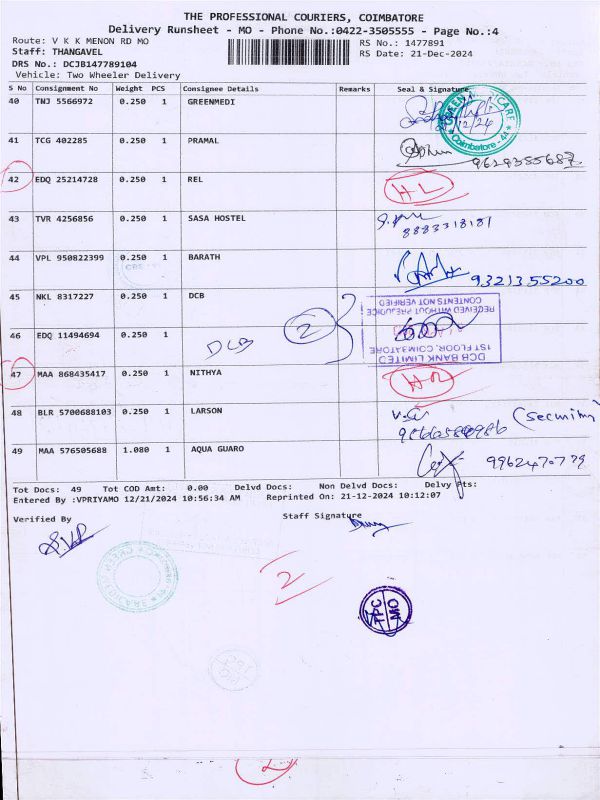 THE PROFESSIONAL COURIERS, COIMBATORE
Delivery Runsheet - MO - Phone No.:0422-3505555 - Page No.:4
Route: V K K MENON RD MO
RS No.: 1477891
Staff: THANGAVEL
RS Date: 21-Dec-2024
DRS No.: DCJB147789104
Vehicle: Two Wheeler Delivery
S No Consignment No Weight PCS Consignee Details Remarks Seal & Signature
40 TNJ 5566972 0.250 1 GREENMEDI
12/24
CARE
Coimbatore - 44
41 TCG 402285 0.250 1 PRAMAL
9629385687
42 EDQ 25214728 0.250 1 REL HL
43 TVR 4256856 0.250 1 SASA HOSTEL
8883318181
44 VPL 950822399 0.250 1 BARATH 9321355200
45 NKL 8317227 0.250 1 DCB
RECEIVED WITHOUT PREJUDICE
CONTENTS NOT VERIFIED
46 EDQ 11494694 0.250 1
DCB 2
DCB BANK LIMITED
1ST FLOOR, COIMBATORE
47 MAA 868435417 0.250 1 NITHYA
48 BLR 5700688103 0.250 1 LARSON
49 MAA 576505688 1.080 1 AQUA GUARO
Tot Docs: 49 Tot COD Amt: 0.00 Delvd Docs: Non Delvd Docs: Delvy Pts:
Entered By :VPRIYAMO 12/21/2024 10:56:34 AM Reprinted On: 21-12-2024 10:12:07
Verified By
Staff Signature
S.VP
2
TPC
MO